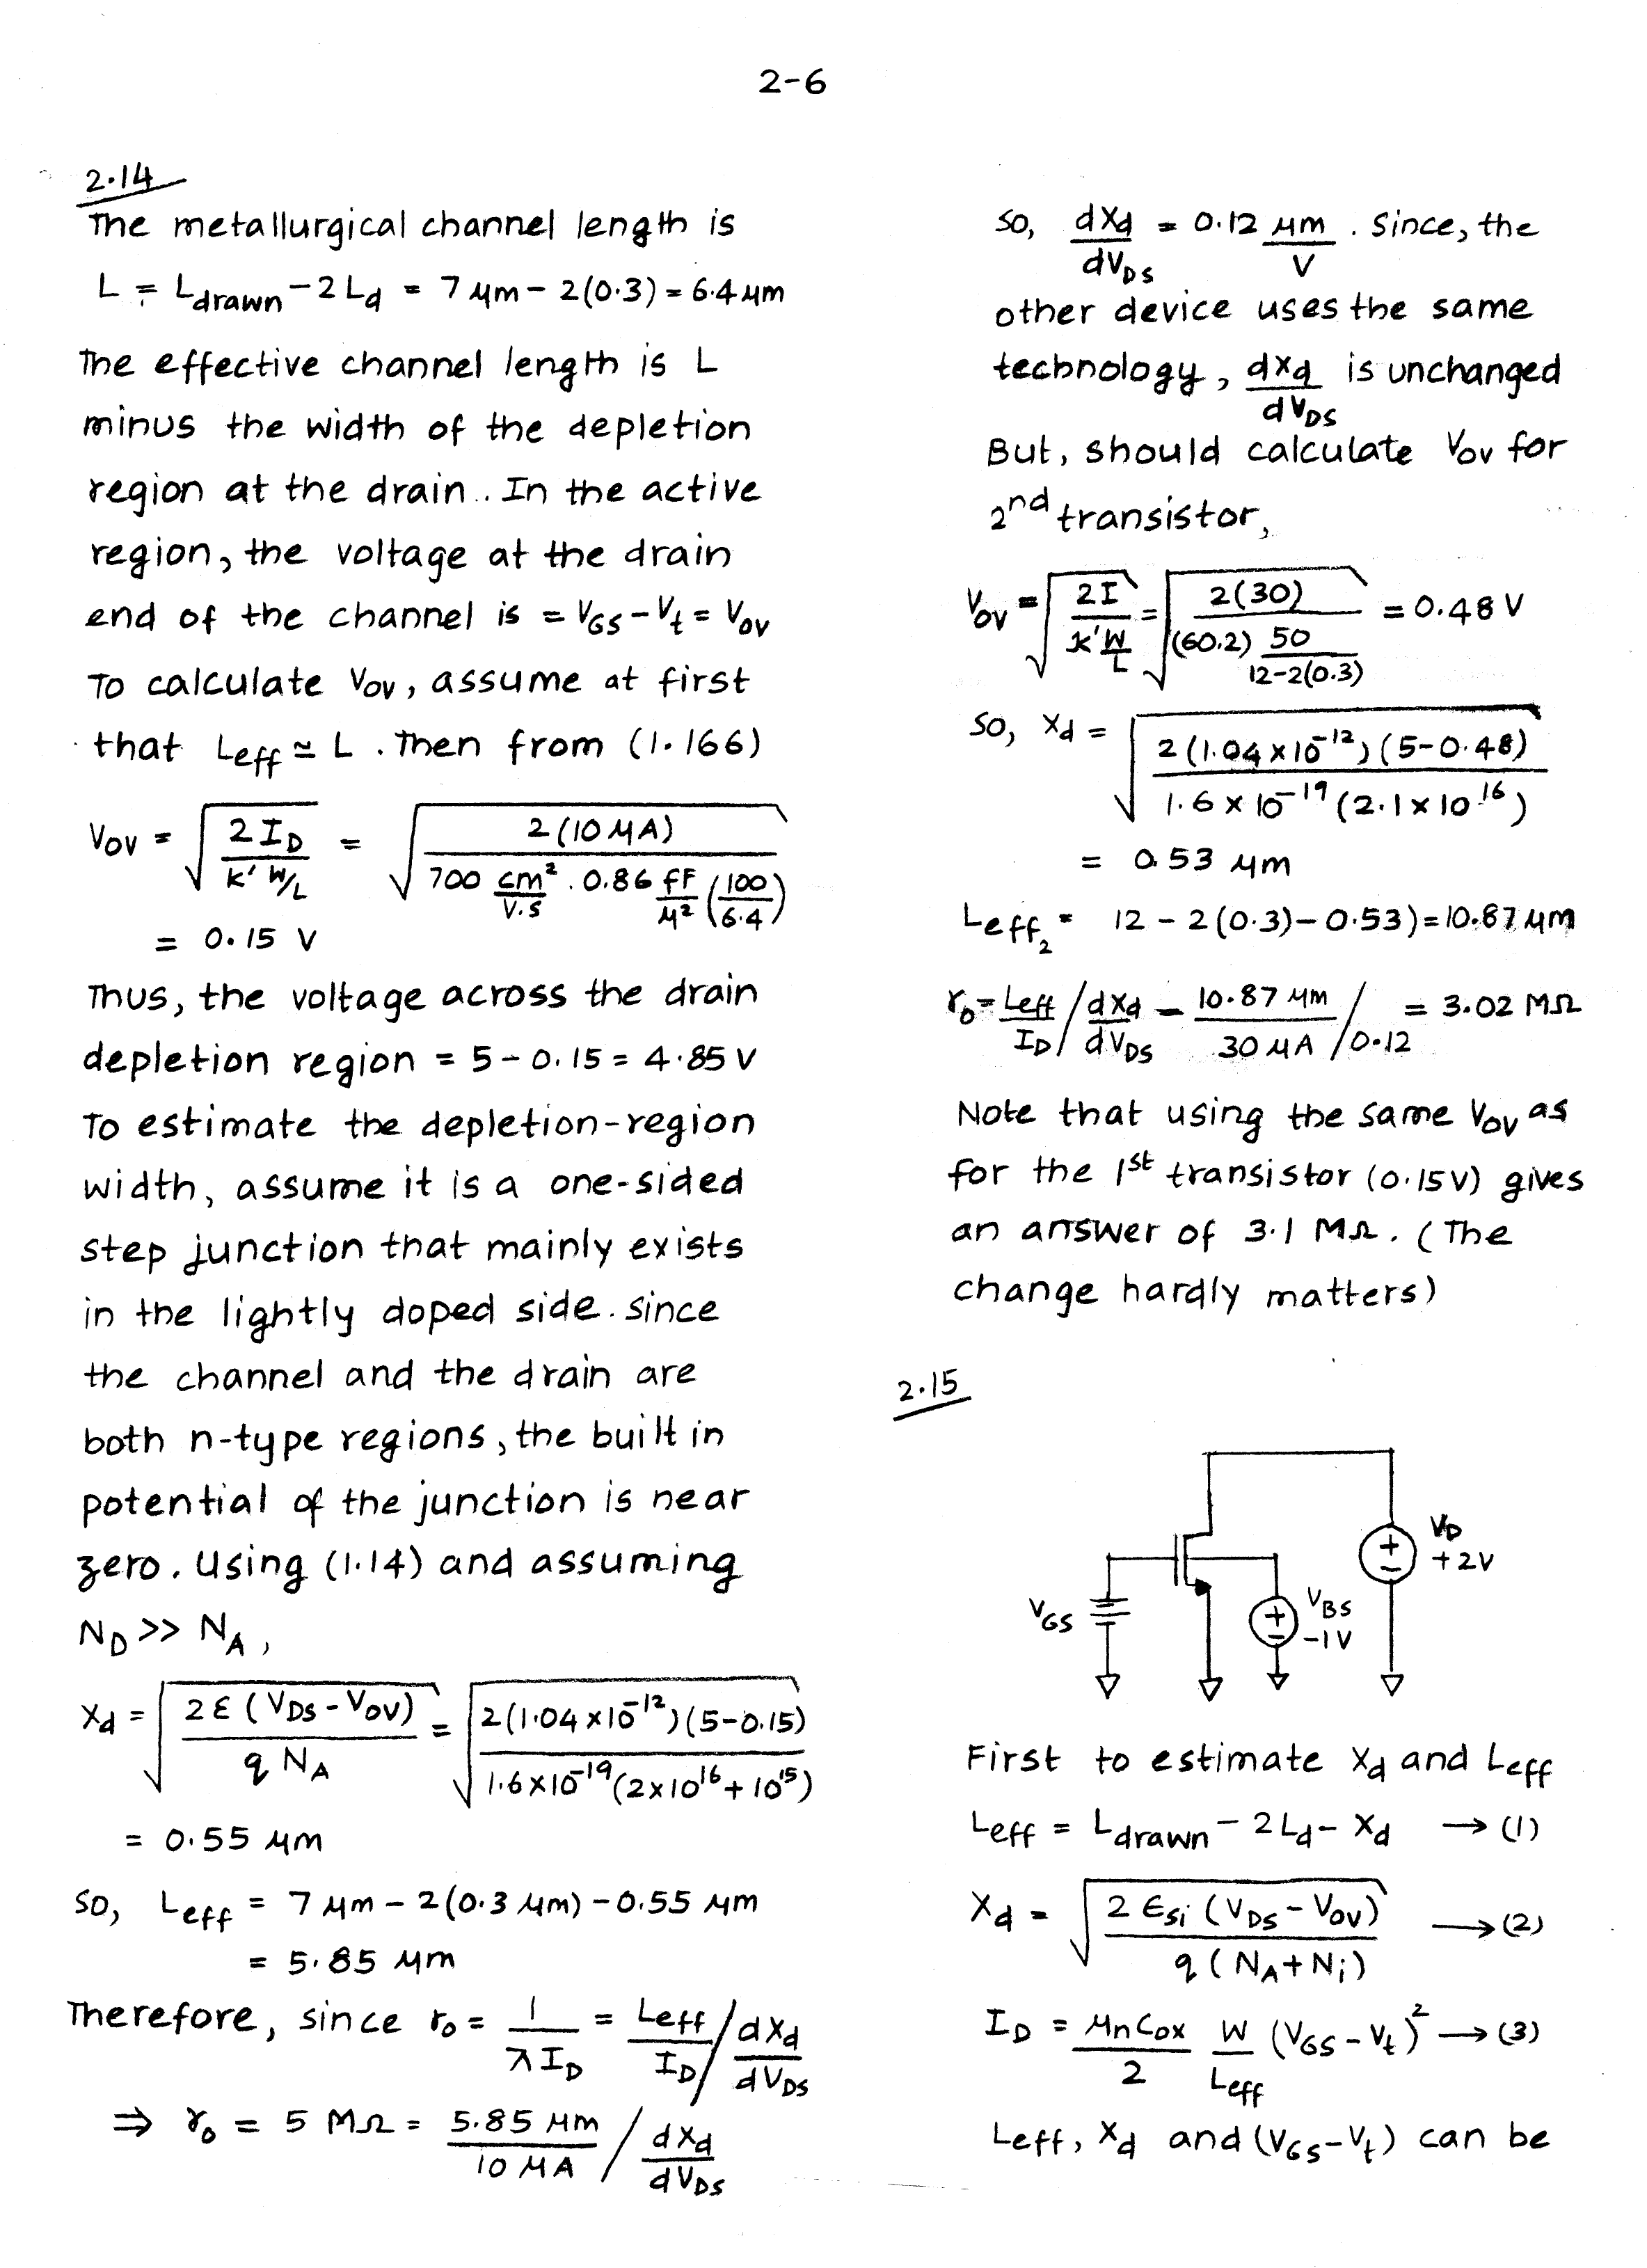 2-6
2.14
The metallurgical channel length is
L = Ldrawn - 2Ld = 7 μm - 2(0.3) = 6.4 μm
The effective channel length is L
minus the width of the depletion
region at the drain.. In the active
region, the voltage at the drain
end of the channel is = VGS - Vt = Vov
To calculate Vov, assume at first
that Leff ≃ L. Then from (1.166)
Vov = √(2ID / (k' W/L)) = √(2(10 μA) / (700 cm²/V.S . 0.86 fF/μ² (100/6.4)))
= 0.15 V
Thus, the voltage across the drain
depletion region = 5 - 0.15 = 4.85 V
To estimate the depletion-region
width, assume it is a one-sided
step junction that mainly exists
in the lightly doped side. Since
the channel and the drain are
both n-type regions, the built in
potential of the junction is near
zero. Using (1.14) and assuming
ND >> NA,
Xd = √(2ε (VDS - Vov) / (q NA)) = √(2(1.04 x 10^-12)(5-0.15) / (1.6 x 10^-19 (2x10^16 + 10^15)))
= 0.55 μm
So, Leff = 7 μm - 2(0.3 μm) - 0.55 μm
= 5.85 μm
Therefore, since ro = 1/(λ ID) = Leff/ID / dXd/dVDS
⇒ ro = 5 MΩ = 5.85 μm/10 μA / dXd/dVDS
So, dXd/dVDS = 0.12 μm/V . Since, the
other device uses the same
technology, dXd/dVDS is unchanged
But, should calculate Vov for
2nd transistor,
Vov = √(2I / (k' W/L)) = √(2(30) / ((60.2) 50/(12-2(0.3)))) = 0.48 V
So, Xd = √(2(1.04 x 10^-12)(5-0.48) / (1.6 x 10^-19 (2.1 x 10^16)))
= 0.53 μm
Leff2 = 12 - 2(0.3) - 0.53) = 10.87 μm
ro = Leff/ID / dXd/dVDS = 10.87 μm/30 μA / 0.12 = 3.02 MΩ
Note that using the same Vov as
for the 1st transistor (0.15V) gives
an answer of 3.1 MΩ. (The
change hardly matters)
2.15
VD
+2V
VGS
VBS
-1V
First to estimate Xd and Leff
Leff = Ldrawn - 2Ld - Xd → (1)
Xd = √(2 εsi (VDS - Vov) / (q (NA + Ni))) → (2)
ID = μnCox/2 W/Leff (VGS - Vt)² → (3)
Leff, Xd and (VGS-Vt) can be